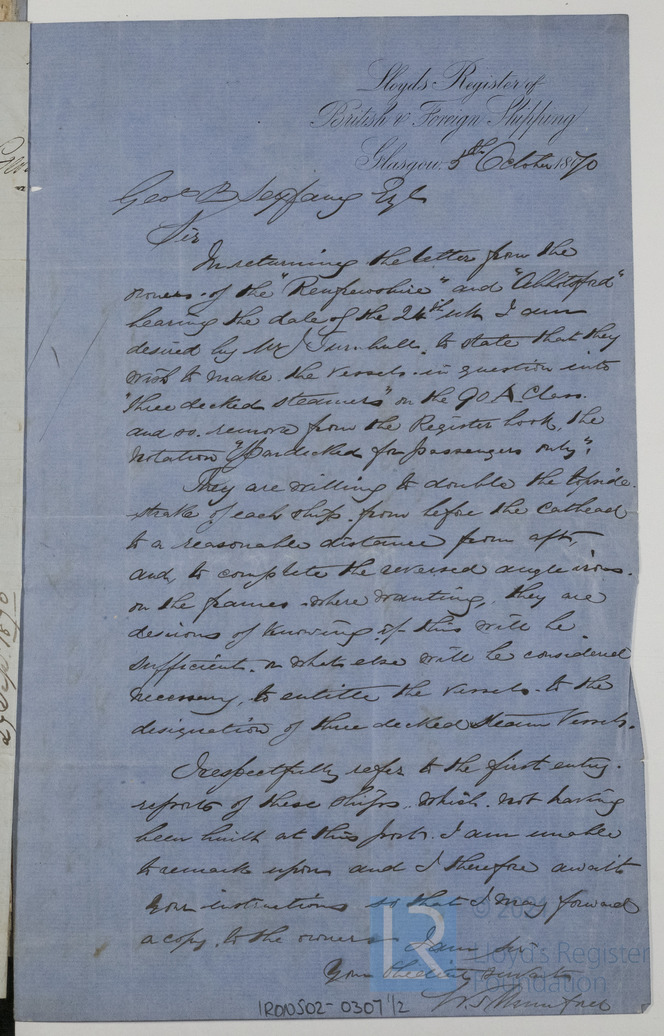 Lloyds Register of
British & Foreign Shipping
Glasgow. 5th October 1870
Geo. B. Seyfang Esq
Sir
In returning the letter from the
owners of the "Renfrewshire" and "Abbotsford"
bearing the date of the 24th ulto I am
desired by Mr J Turnbull. to state that they
wish to make the vessels in question into
"three decked steamers" on the 90 A Class.
and so remove from the Register book, the
notation "Spardecked for passengers only".
They are willing to double the topside
strake of each ship from before the cathead
to a reasonable distance from aft,
and, to complete the reversed angle irons.
on the frames where wanting, they are
desirous of knowing if this will be
sufficient. or what else will be considered
necessary, to entitle the vessels to the
designation of three decked steam vessels.
I respectfully refer to the first entry
reports of these ships. which not having
been built at this port. I am unable
to remark upon and I therefore await
your instructions so that I may forward
a copy to the owners I am Sir
Your obedient servant
W. S. Mumford
IRON502-0307 1/2
LR
© 20
Lloyd's Register
Foundation
27 Sep. 1870